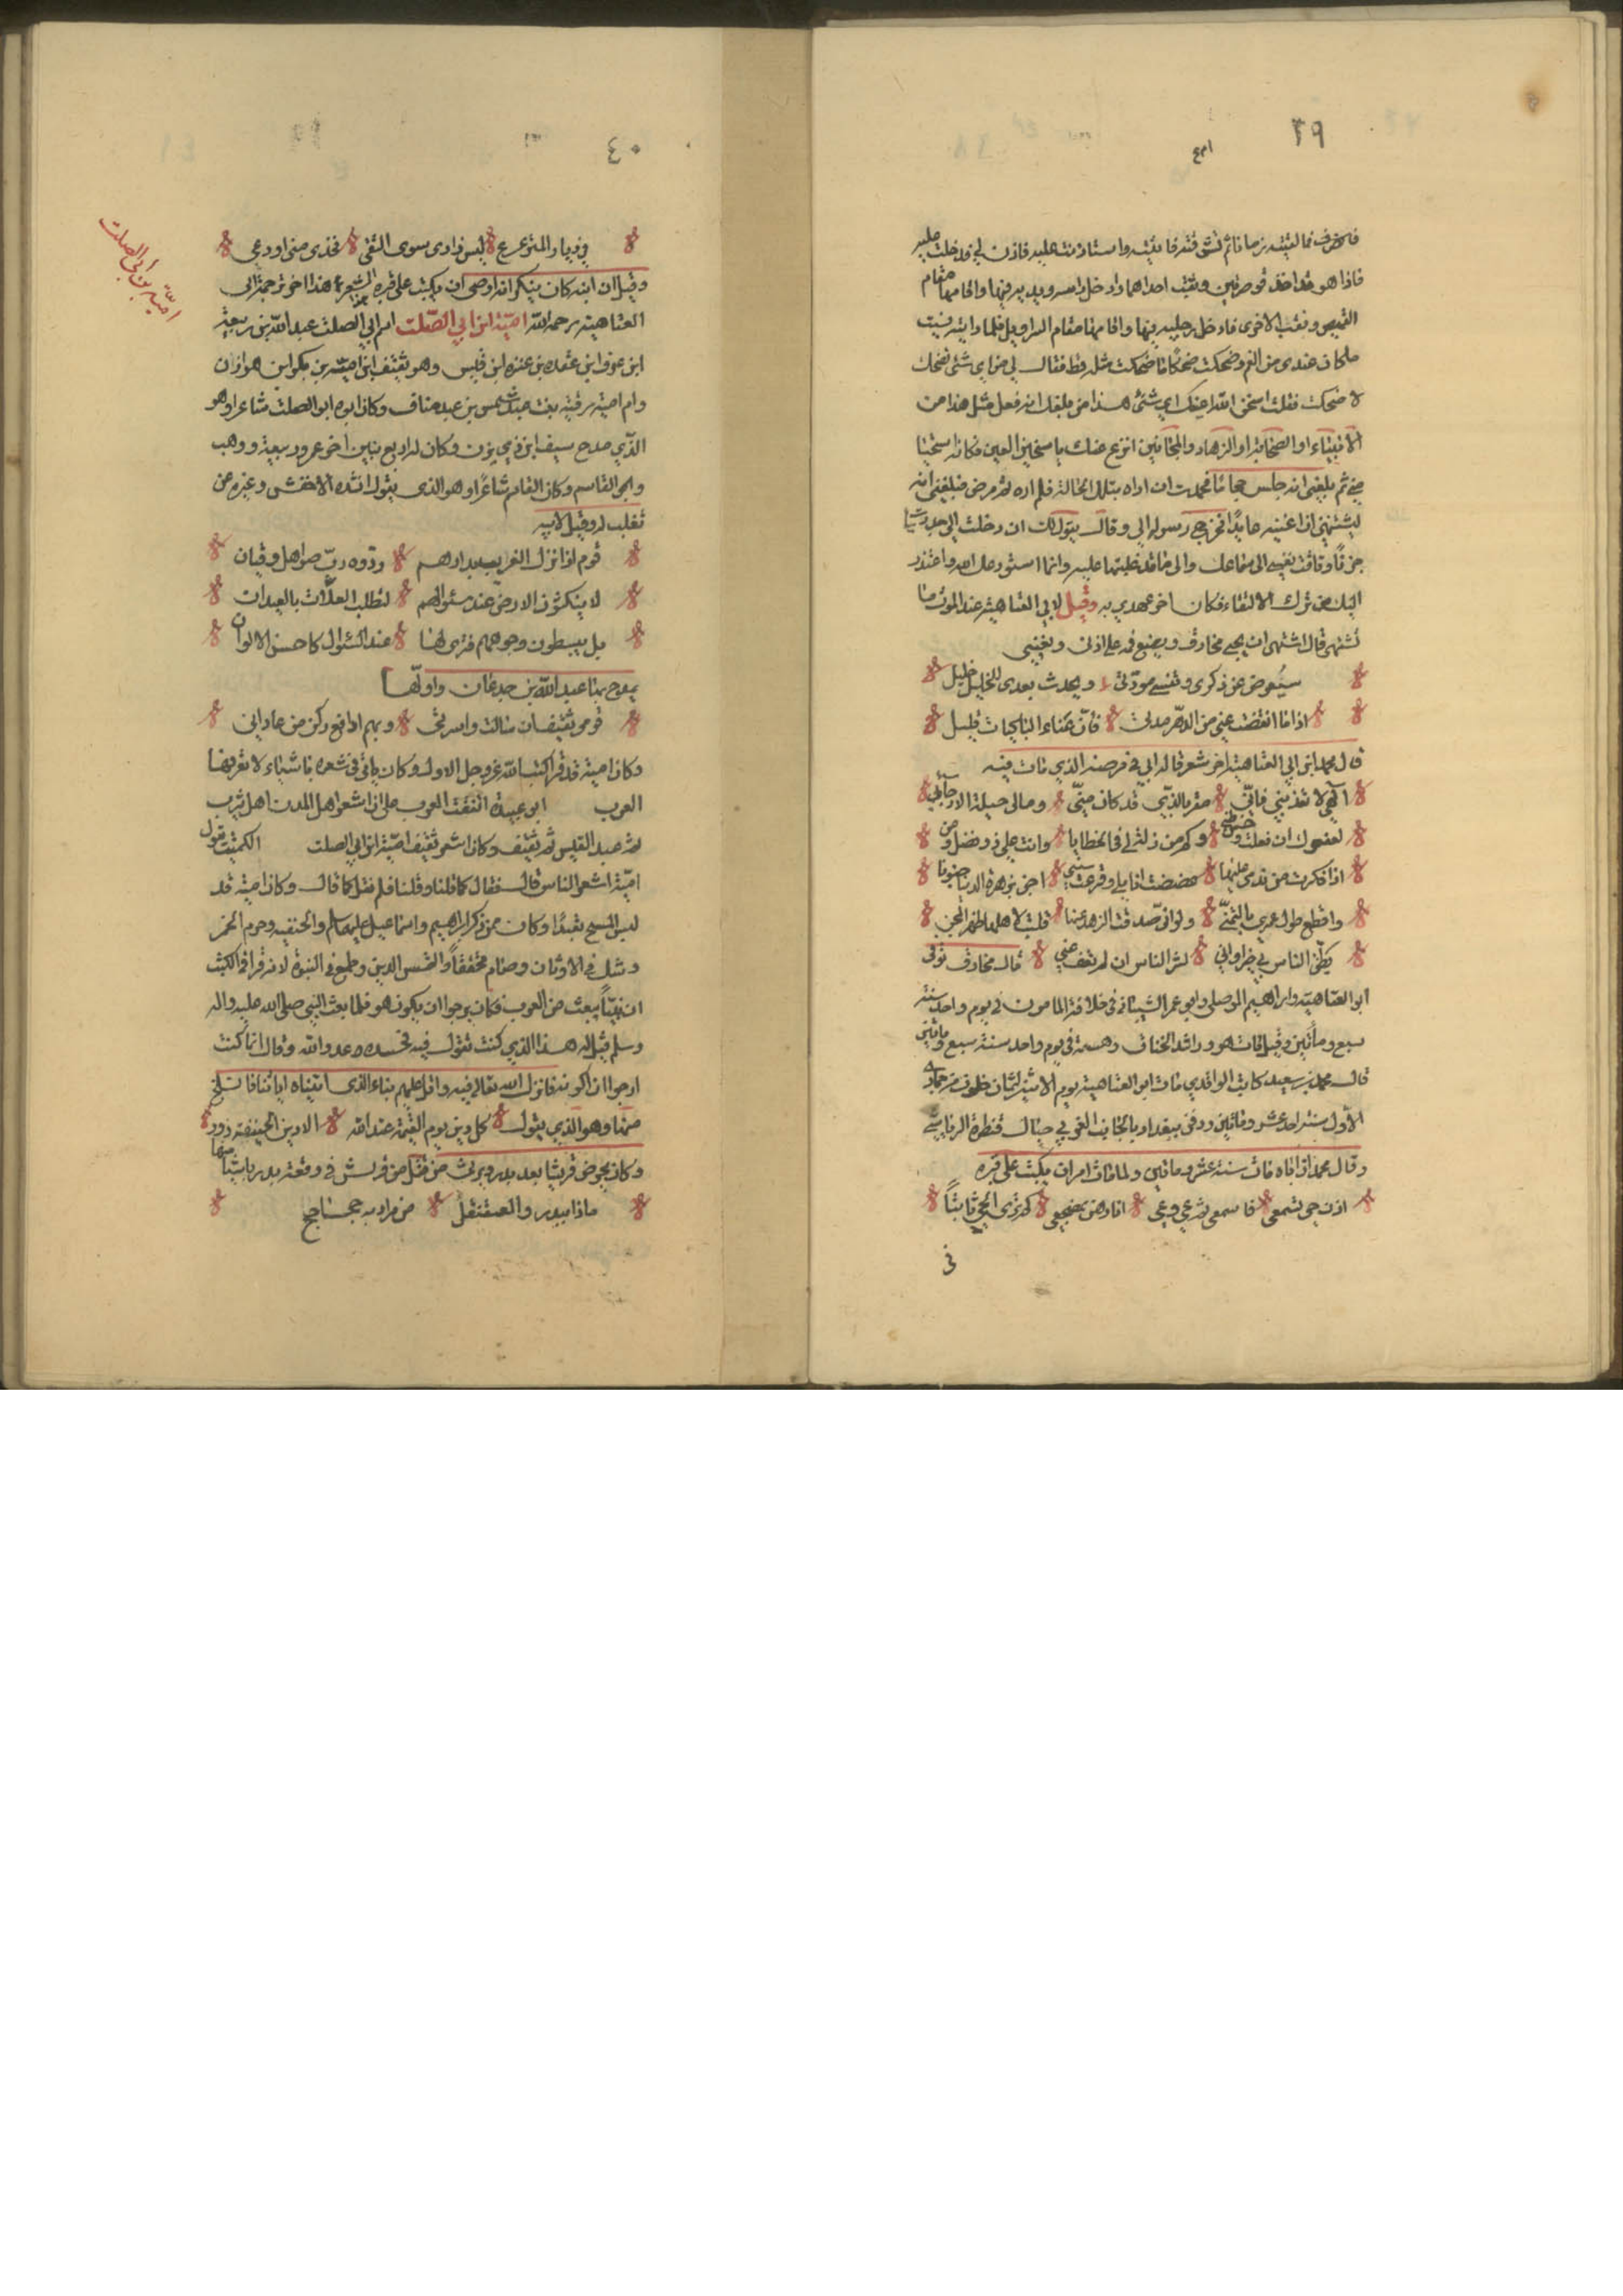 ٣٩
فانصرف فما لقيته زمانا ثم تشوقته فاتيته واستاذنت عليه فاذن لي فدخلت عليه
فاذا هو قد اخذ قوصرتين وثقب احداهما وادخل راسه ويديه فيها واقامها مقام
القميص وثقب الاخرى فادخل رجليه فيها واقامها مقام السراويل فلما رايته نسيت
ما كان عندى من الغم وضحكت ضحكا ما ضحكت مثله قط فقال لي من اي شئ تضحك
لا ضحكت فقلت اسخن الله عينك اي شئ هذا من بلغك انه فعل مثل هذا من
الانبياء او الصحابة او الزهاد والمجانين انزع عنك يا سخين العين فكانه استحيا
مني ثم بلغني انه جلس حجاما فجهدت ان اراه بتلك الحالة فلم اره ثم مرض فبلغني انه
يشتهي ان اغنيه عايدا فخرج رسوله الي وقال يقول لك ان دخلت الي جددت لي
حزنا وتاقت نفسى الى سماعك والى ما قد غلبتها عليه وانا استودعك الله واعتذر
اليك من ترك الالتقاء فكان اخر عهدي به وقيل لابي العتاهية عند الموت ما
تشتهي قال اشتهى ان يجي مخارق ويضع فمه على اذنى ويغنيني
سيعرض عن ذكرى وتنسى مودتى ويحدث بعدى للخليل خليل
اذا ما انقضت عني من الدهر مدتى فان غناء الباكيات قليل
قال محمد ابن ابي العتاهية اخر شعر قاله ابي في مرضه الذي مات فيه
الهي لا تعذبني فاني مقر بالذي قد كان مني ومالى حيلة الا رجائي
لعفوك ان عفلت وحسن ظني وكم من زلة لي في الخطايا وانت علي ذو فضل ومن
اذا فكرت من ندمى عليها عضضت اناملي وقرعت سني اجن بزهرة الدنيا جنونا
واقطع طول عمري بالتمني ولو اني صدقت الزهد عنها قلبت لاهلها ظهر المجن
يظن الناس بي خيرا واني لشر الناس ان لم تعف عني قال مخارق توفى
ابو العتاهية وابراهيم الموصلى وابو عمر الشيباني فى خلافة المامون في يوم واحد سنة
سبع ومأتين وقيل مات هو وراشد الخناق وهيسمة فى يوم واحد سنة سبع ومائتين
قال محمد بن سعيد كاتب الواقدي مات ابو العتاهية يوم الاثنين لثمان خلون من جمادى
الاول سنة احد عشر ومائتين ودفن ببغداد بالجانب الغربي حيال قنطرة الرياتين
وقال محمد ان اباه مات سنة عشر ومائتين ولما مات امر ان يكتب على قبره
اذن حي تسمعي فاسمعي ثم عي وعي انا رهن بمضجعي كم ترى الحي ثابتا
فى
٤٠
في ديار التزعزع ليس زادى سوى التقى فخذى منى او دعي
وقيل ان ابنه كان ينكر انه اوصى ان يكتب على قبره الشعر هذا اخر ترجمة ابى
العتاهية رحمه الله امية ابن ابي الصلت اسم ابي الصلت عبد الله بن ربيعة
ابن عوف ابن عقدة بن عنزه ابن قيس وهو ثقيف ابن امية بن بكر ابن هوازن
وام امية رقية بنت عبد شمس بن عبد مناف وكان ابوه ابو الصلت شاعرا وهو
الذي مدح سيف ابن ذي يزن وكان له اربع بنين اخر عمرو ربيعة ووهب
وابو القاسم وكان القاسم شاعرا وهو الذى يقول انشده الاخفش وغيره من
ثعلب له وقيل لابيه
قوم اذا نزل الغريب بدارهم ردوه رب صواهل وقيان
لا ينكتون الارض عند سئوالهم لتطلب العلات بالعيدان
بل يبسطون وجوههم فترى لها عند السئوال كاحسن الالوان
يمدح بها عبد الله بن جدعان واولها
قومى ثقيف ان سالت واسرتى وبهم ادافع ركن من عاداني
وكان امية قد قرا كتب الله عز وجل الاول وكان ياتى فى شعره باشياء لا تعرفها
العرب ابو عبيدة اتفقت العرب على ان اشعر اهل المدن اهل يثرب
ثم عبد القيس ثم ثقيف وكان اشعر ثقيف امية ابن ابي الصلت الكميت يقول
امية اشعر الناس قال فقال كما قلنا وقلنا فلم نقل كما قال وكان امية قد
لبس المسح تعبدا وكان ممن ذكر ابراهيم واسماعيل عليهما السلام والحنيفية وحرم الخمر
وشك في الاوثان وصام محققا والتمس الدين وطمع في النبوة لانه قرا فى الكتب
ان نبيا يبعث من العرب فكان يرجوا ان يكون هو فلما بعث النبي صلى الله عليه واله
وسلم قيل له هذا الذي كنت تقول فيه فحسده عدو الله وقال انما كنت
ارجوا ان اكونه فانزل الله تعالى فيه واتل عليهم نباء الذى اتيناه اياتنا فانسلخ
منها وهو الذي يقول كل دين يوم القيمة عند الله الا دين الحنيفة زور
وكان يحرض قريشا بعد بدر ويرثى من قتل من قريش في وقعة بدر بابيات منها
ماذا ببدر والعقنقل من مرازبه جحاجح
امية بن أبى الصلت